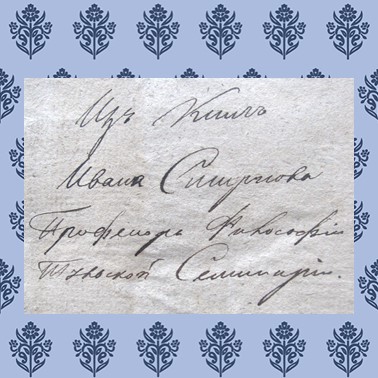 Изъ Книгъ
Ивана Смирнова
Професора Философіи
Тульской Семинаріи.